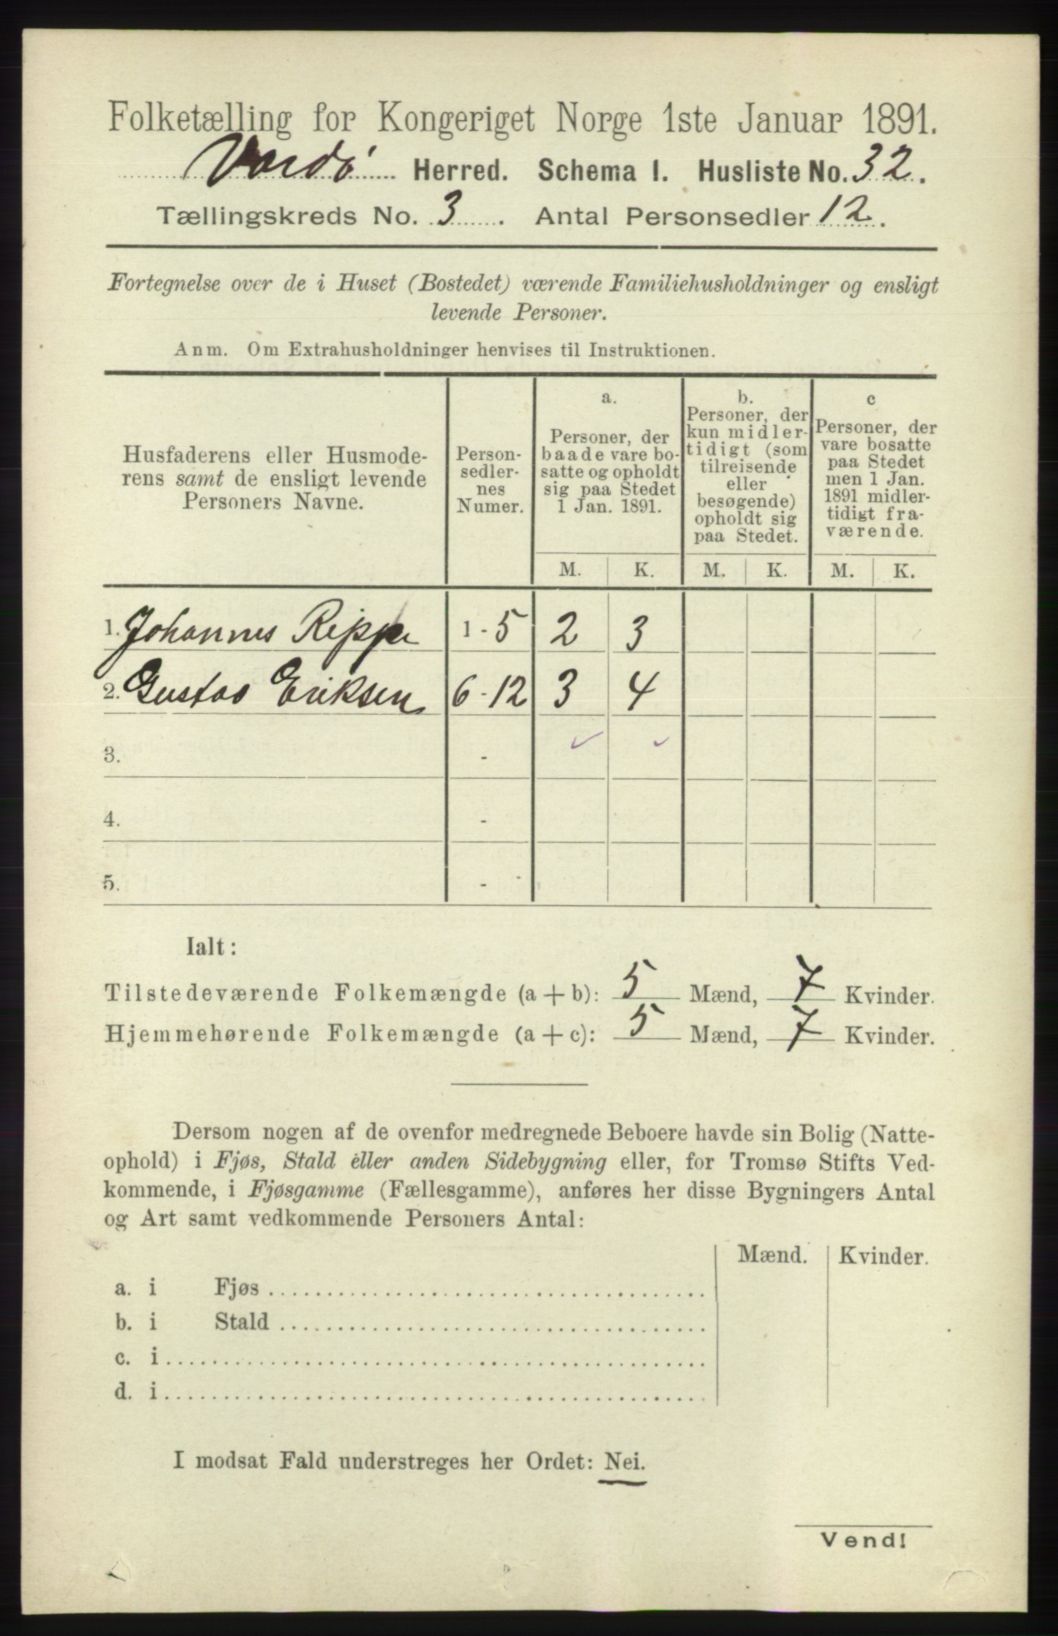 Folketælling for Kongeriget Norge 1ste Januar 1891.
Vardø Herred. Schema I. Husliste No. 32.
Tællingskreds No. 3. Antal Personsedler 12.
Fortegnelse over de i Huset (Bostedet) værende Familiehusholdninger og ensligt
levende Personer.
Anm. Om Extrahusholdninger henvises til Instruktionen.
Husfaderens eller Husmode-
rens samt de ensligt levende
Personers Navne.
Person-
sedler-
nes
Numer.
a.
Personer, der
baade vare bo-
satte og opholdt
sig paa Stedet
1 Jan. 1891.
b.
Personer, der
kun midler-
tidigt (som
tilreisende
eller
besøgende)
opholdt sig
paa Stedet.
c
Personer, der
vare bosatte
paa Stedet
men 1 Jan.
1891 midler-
tidigt fra-
værende.
M. K. M. K. M. K.
1. Johannes Reppe 1 - 5 2 3
2. Gustav Eriksen 6 - 12 3 4
3. -
4. -
5. -
Ialt:
Tilstedeværende Folkemængde (a + b): 5 Mænd, 7 Kvinder.
Hjemmehørende Folkemængde (a + c): 5 Mænd, 7 Kvinder.
Dersom nogen af de ovenfor medregnede Beboere havde sin Bolig (Natte-
ophold) i Fjøs, Stald eller anden Sidebygning eller, for Tromsø Stifts Ved-
kommende, i Fjøsgamme (Fællesgamme), anføres her disse Bygningers Antal
og Art samt vedkommende Personers Antal:
Mænd. Kvinder.
a. i Fjøs
b. i Stald
c. i
d. i
I modsat Fald understreges her Ordet: Nei.
Vend!